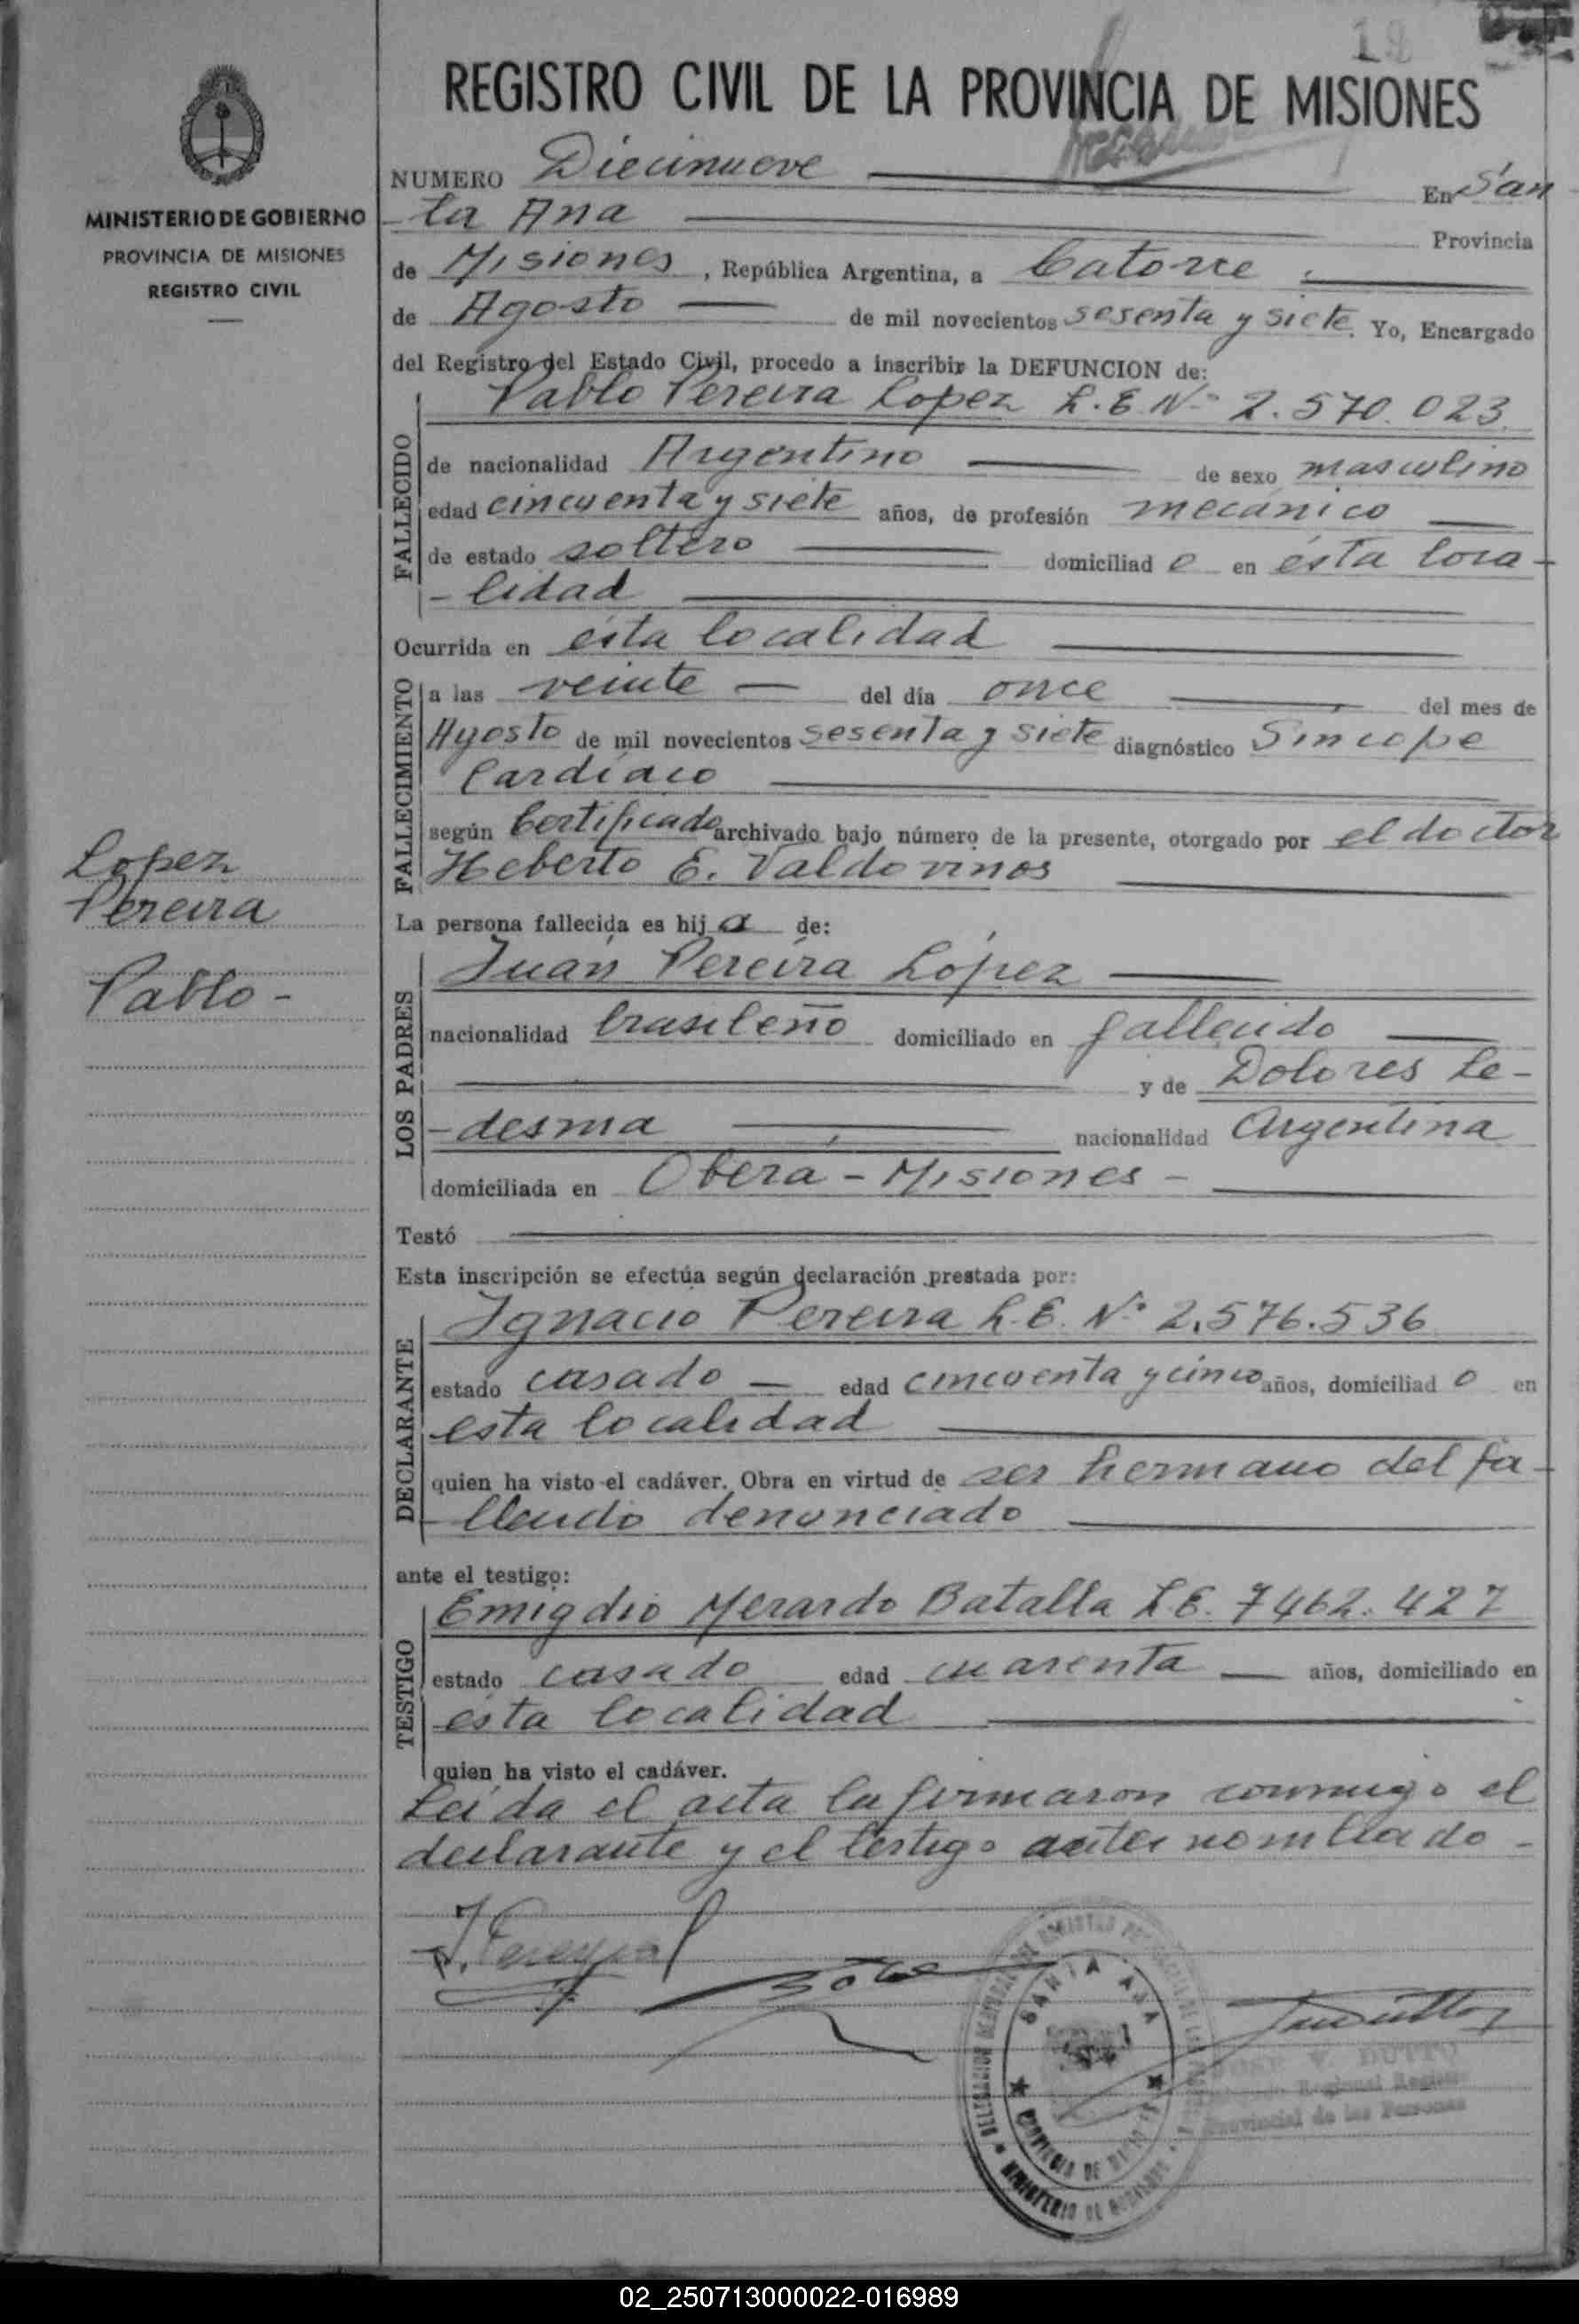 19
REGISTRO CIVIL DE LA PROVINCIA DE MISIONES
MINISTERIO DE GOBIERNO
PROVINCIA DE MISIONES
REGISTRO CIVIL
NUMERO Diecinueve En San
ta Ana Provincia
de Misiones, República Argentina, a Catorce
de Agosto de mil novecientos sesenta y siete. Yo, Encargado
del Registro del Estado Civil, procedo a inscribir la DEFUNCION de:
Pablo Pereira Lopez L.E. Nº 2.570.023
FALLECIDO
de nacionalidad Argentino de sexo masculino
edad cincuenta y siete años, de profesión mecánico
de estado soltero domiciliad o en ésta loca-
-lidad
Ocurrida en ésta localidad
FALLECIMIENTO
a las veinte del día once del mes de
Agosto de mil novecientos sesenta y siete diagnóstico Sincope
Cardíaco
según Certificado archivado bajo número de la presente, otorgado por el doctor
Heberto E. Valdovinos
Lopez
Pereira
Pablo-
La persona fallecida es hij a de:
LOS PADRES
Juan Pereira López
nacionalidad brasileño domiciliado en fallecido
y de Dolores Le-
-desma nacionalidad Argentina
domiciliada en Oberá - Misiones -
Testó
Esta inscripción se efectúa según declaración prestada por:
DECLARANTE
Ignacio Pereira L.E. Nº 2.576.536
estado casado edad cincuenta y cinco años, domiciliad o en
esta localidad
quien ha visto el cadáver. Obra en virtud de ser hermano del fa-
llecido denunciado
ante el testigo:
TESTIGO
Emigdio Merardo Batalla L.E. 7462.427
estado casado edad cuarenta años, domiciliado en
ésta localidad
quien ha visto el cadáver.
Leída el acta la firmaron conmigo el
declarante y el testigo antes nombrado -
SANTA ANA
PROVINCIA DE MISIONES
MINISTERIO DE GOBIERNO
JOSE V. DUTTO
Regional Registro
Provincial de las Personas
02_250713000022-016989